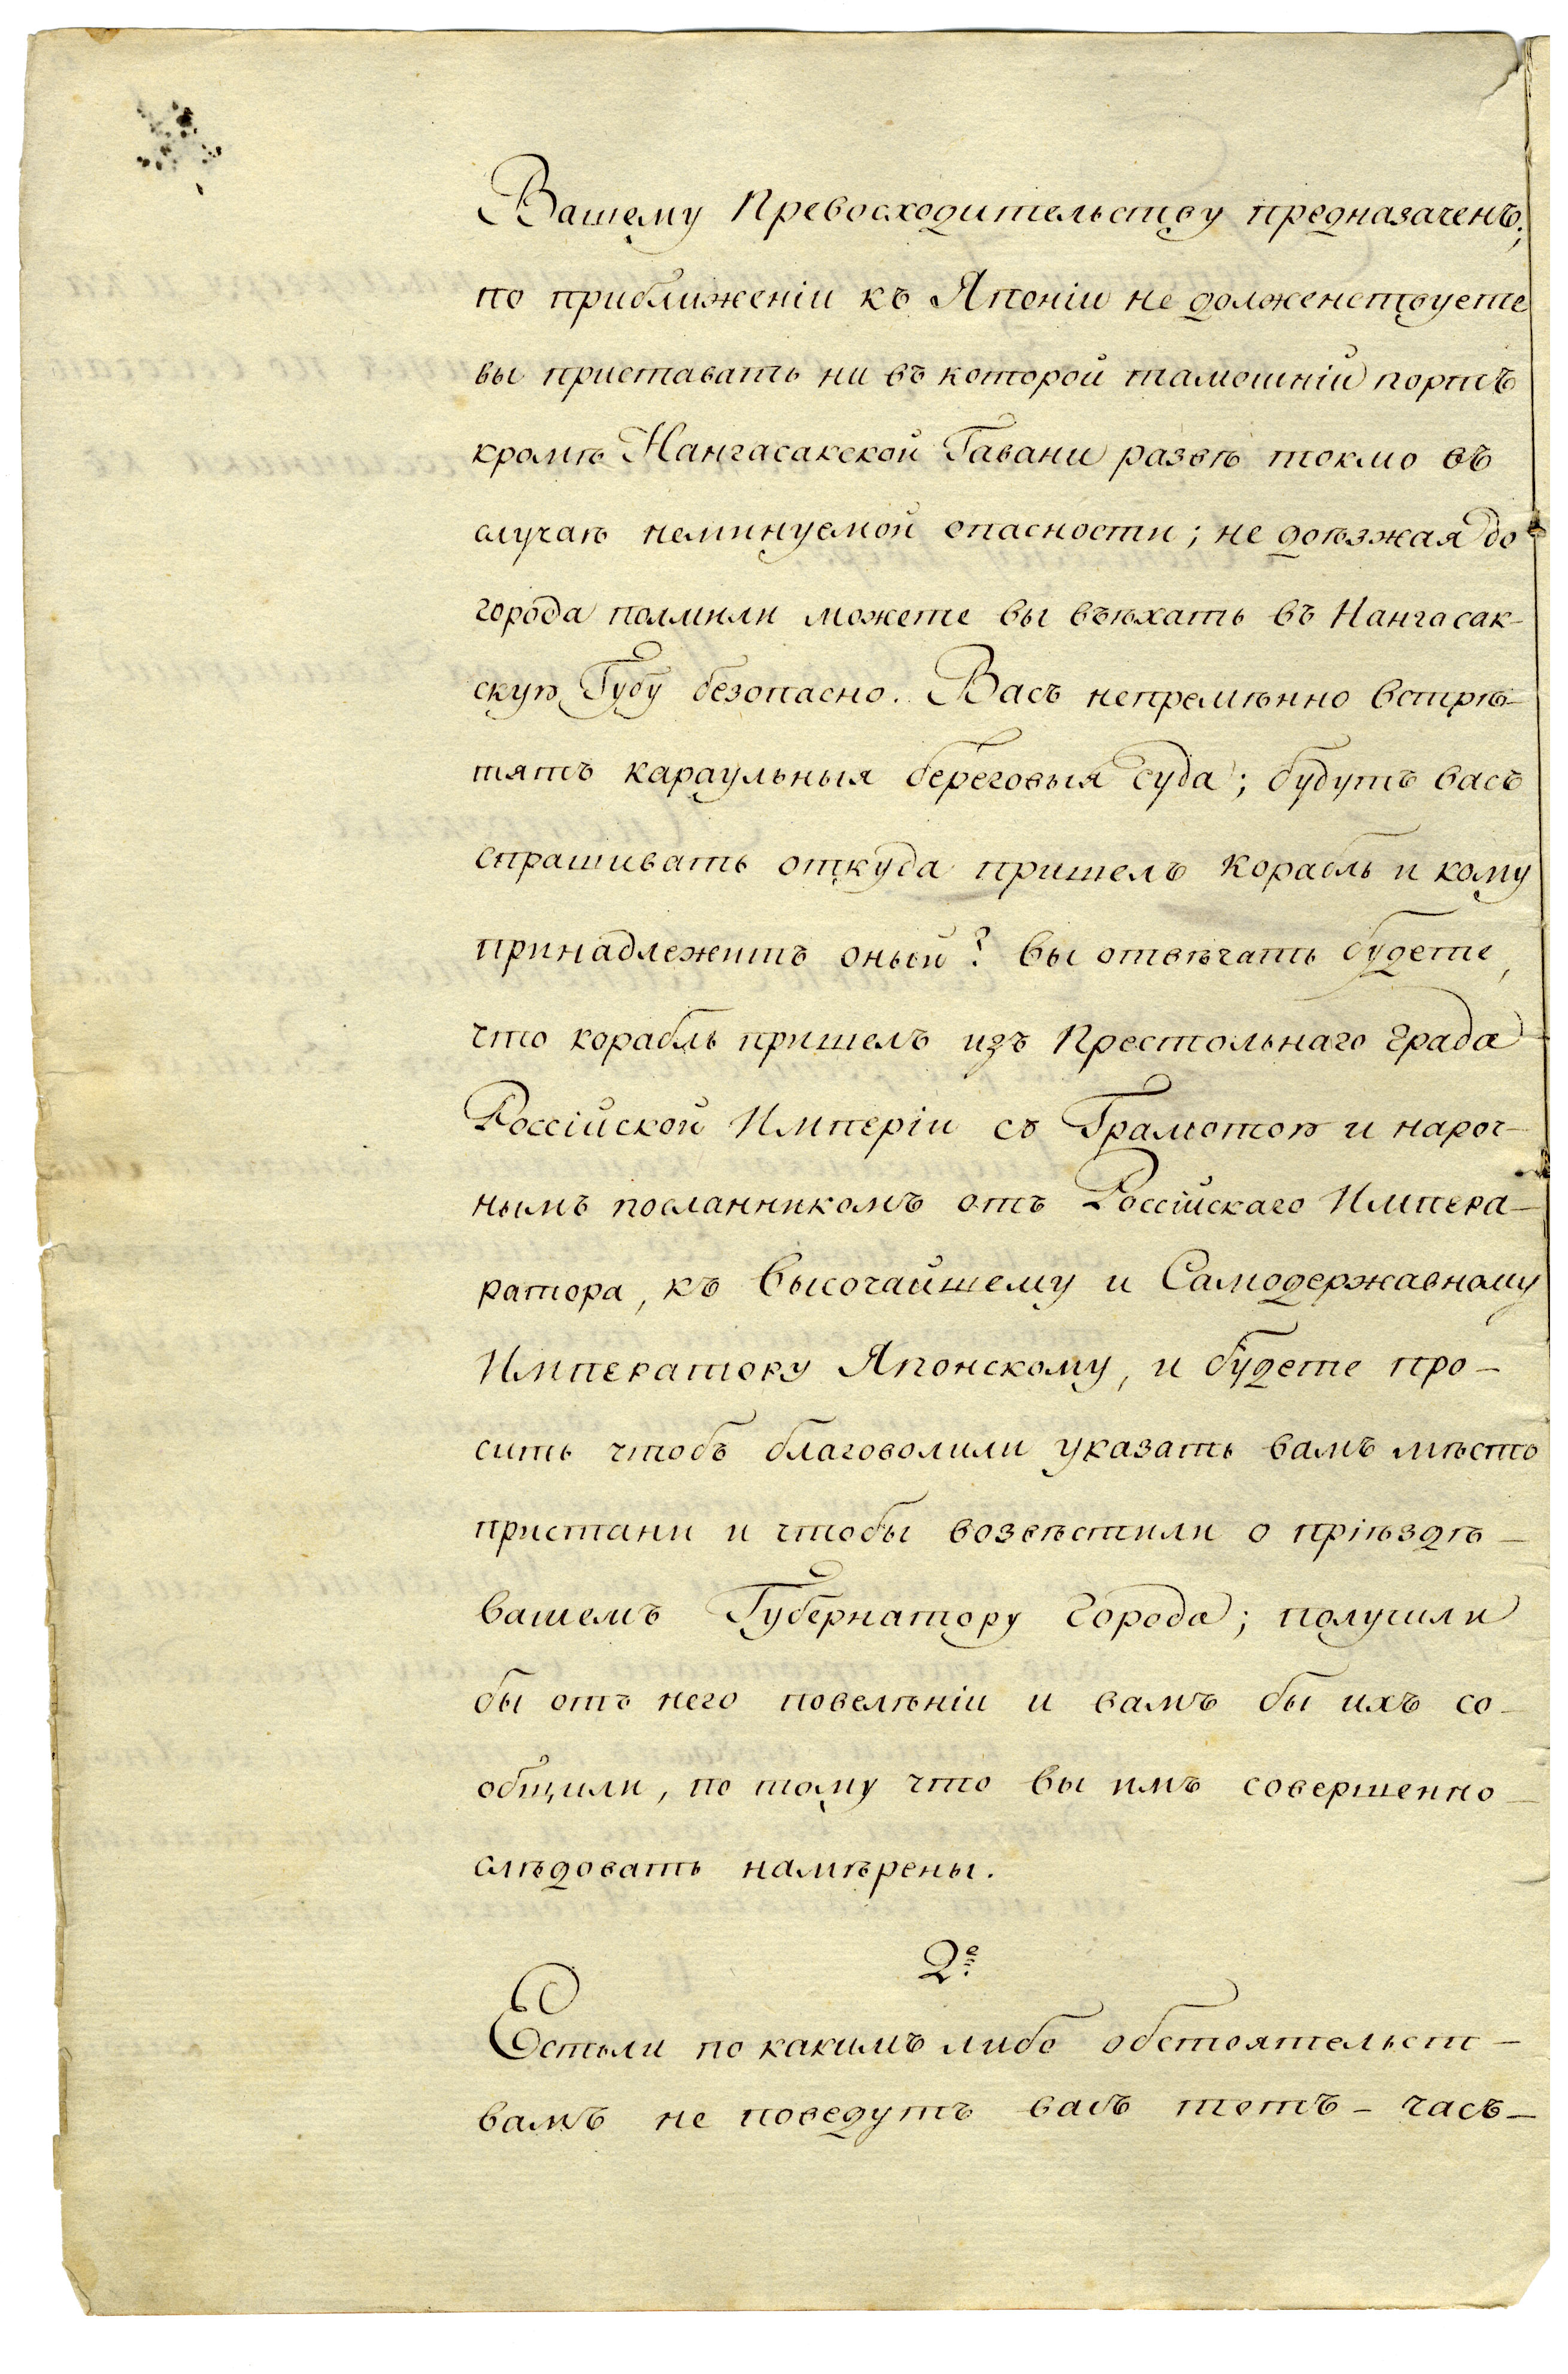 Вашему Превосходительству предназаченъ;
по приближеніи къ Японіи не долженствуете
вы приставать ни въ которой тамошніи портъ
кромѣ Нангасакской Гавани развѣ токмо въ
случаѣ неминуемой опасности; не доѣзжая до
города полмили можете вы въѣхать въ Нангасак-
скую Губу безопасно. Васъ непремѣнно встрѣ-
тятъ караульныя береговыя суда; будутъ васъ
спрашивать откуда пришелъ корабль и кому
принадлежитъ оный? вы отвѣчать будете,
что корабль пришелъ изъ Престольнаго града
Россійской Имперіи съ Грамотою и нароч-
нымъ посланникомъ отъ Россійскаго Импера-
ратора, къ Высочайшему и Самодержавному
Императору Японскому, и будете про-
сить чтобъ благоволили указать вамъ мѣсто
пристани и чтобы возвѣстили о пріѣздѣ-
вашемъ Губернатору Города; получили
бы отъ него повелѣніи и вамъ бы ихъ со-
общили, по тому что вы имъ совершенно-
слѣдовать намѣрены.
2е
Естьли по какимъ либо обстоятельст-
вамъ не поведутъ васъ тотъ-часъ-